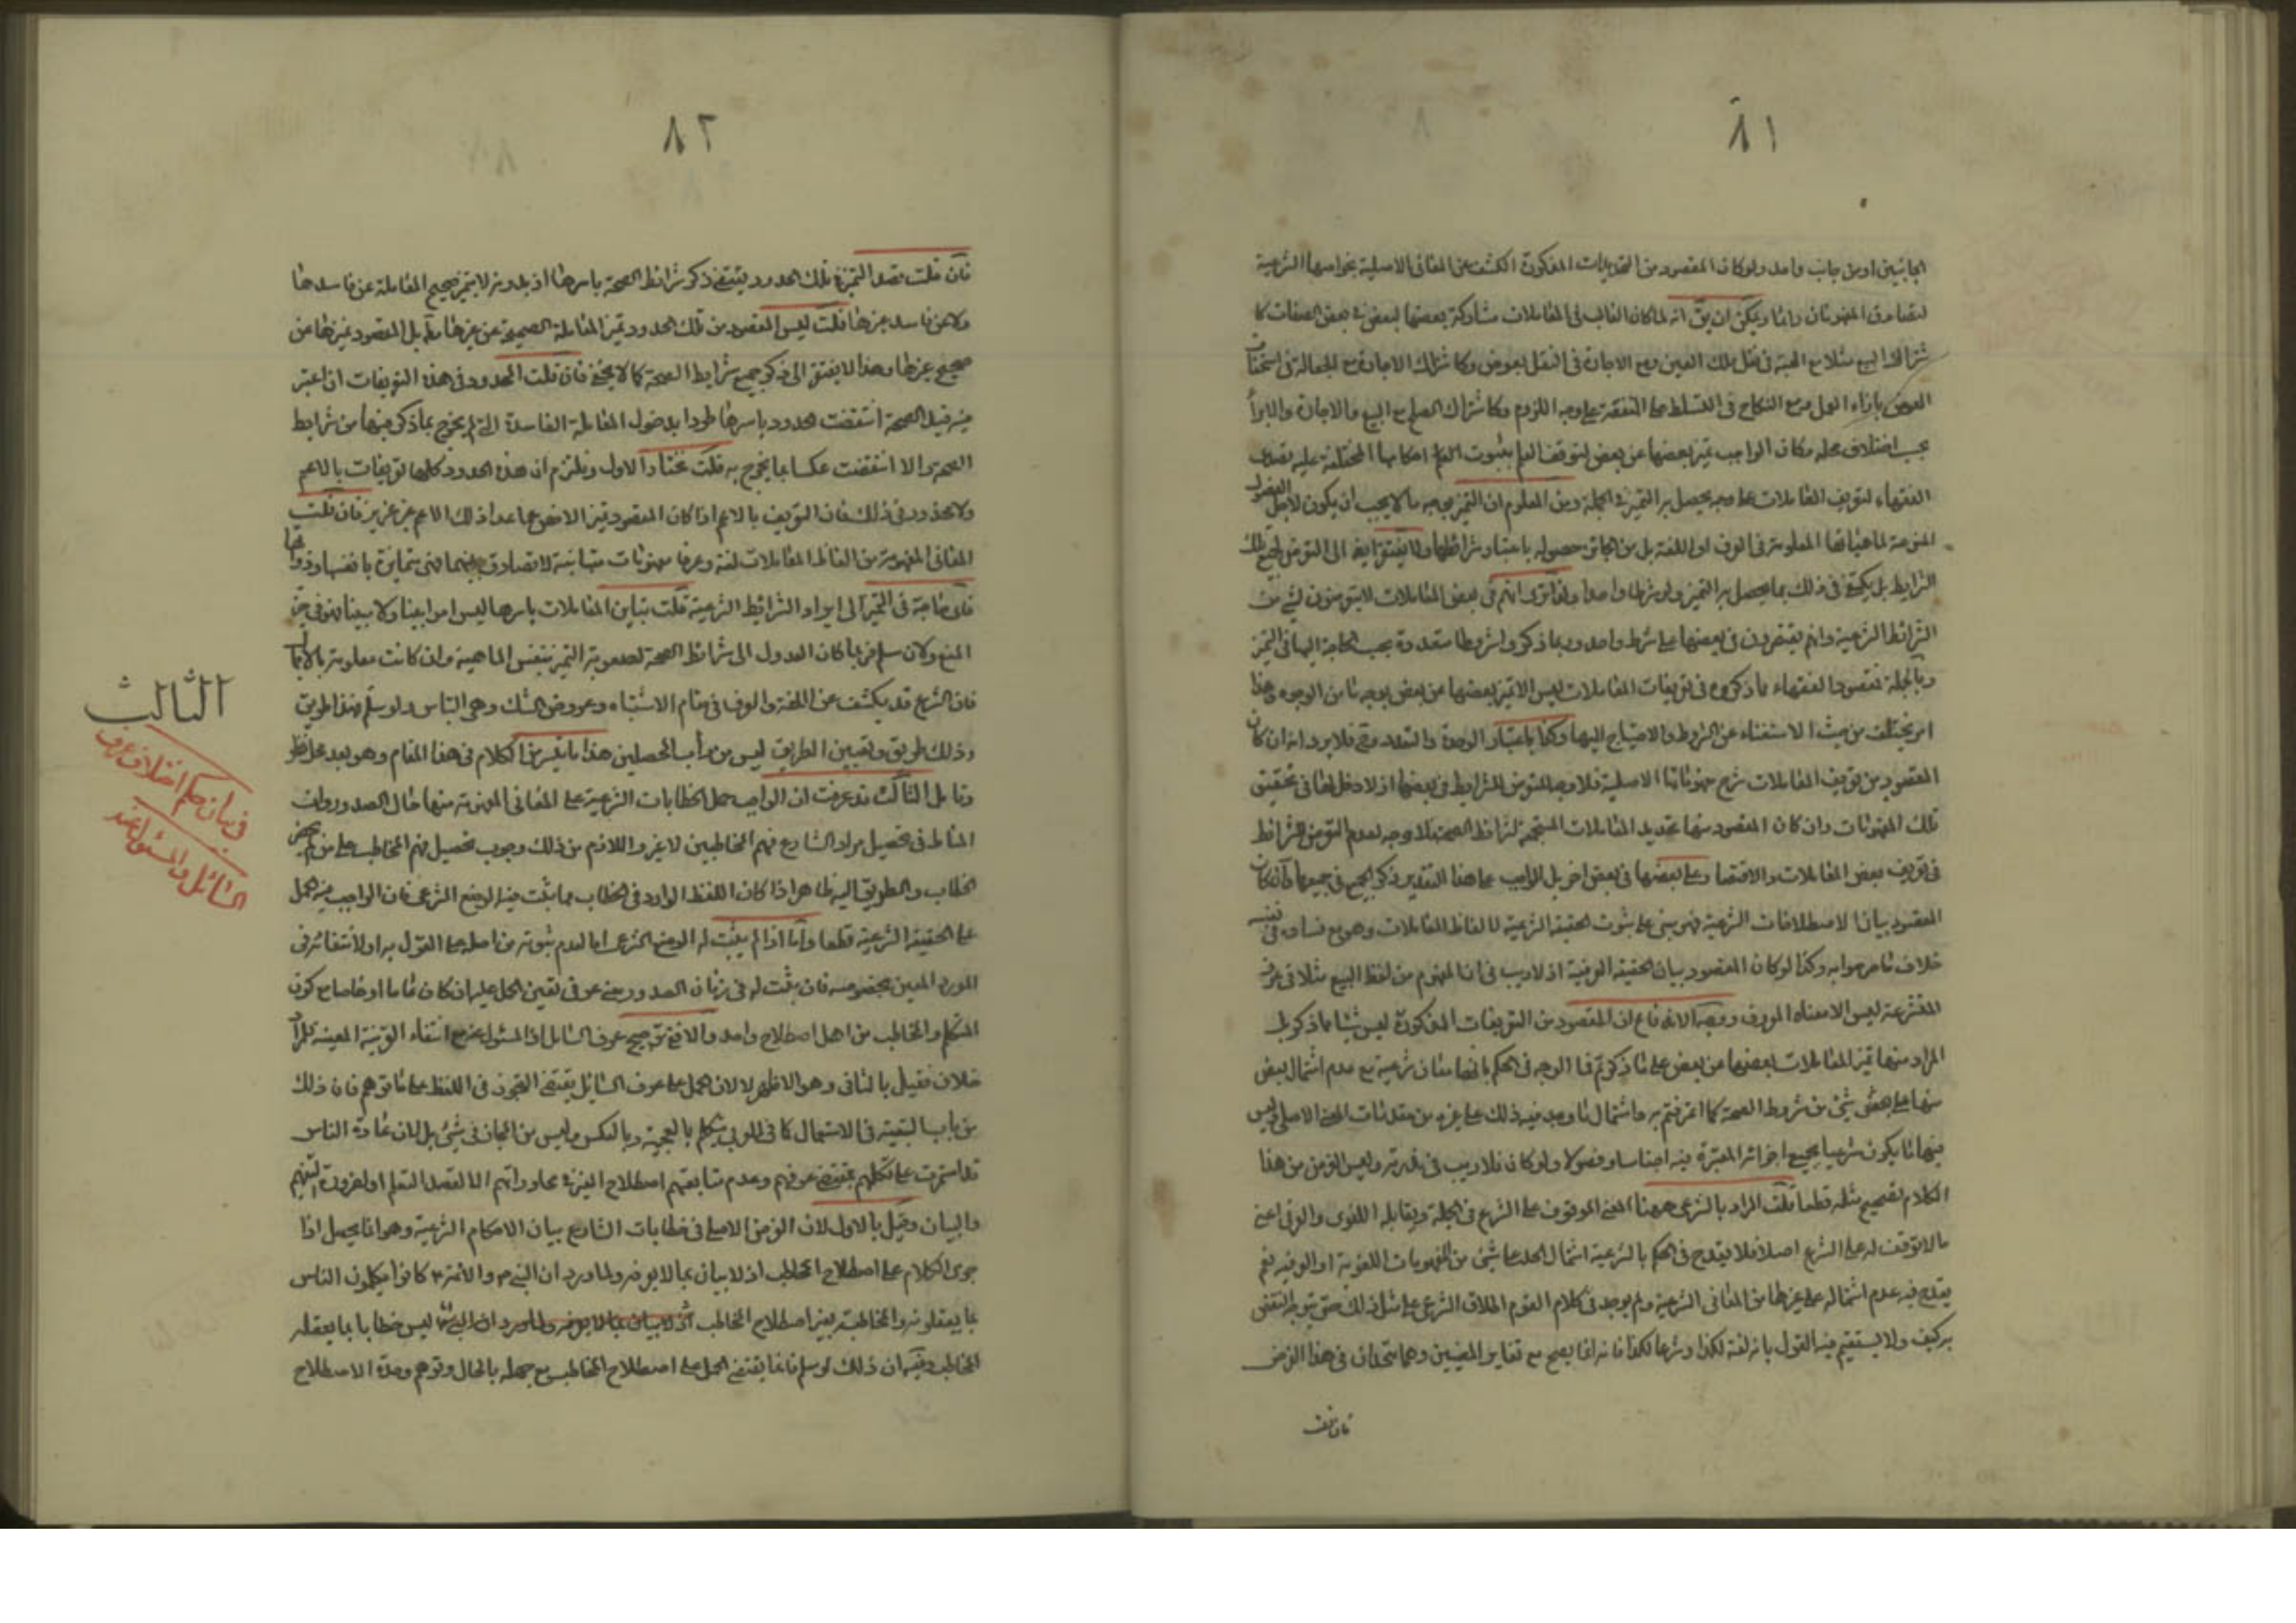 ٨١
الجانبين او من جانب واحد ولو كان المقصود من التحديدات المذكورة الكشف عن المعانى الاصلية بخواصها الشرعية
لتصادق المفهومان دائما ويمكن ان يق انه لما كان الغالب فى المعاملات مشاركة بعضها لبعض فى بعض الصفات كا
شتراك البيع مثلا مع الهبة فى نقل ملك العين ومع الاجارة فى النقل بعوض وكاشتراك الاجارة مع الجعالة فى استحقاق
العوض بازاء العمل ومع النكاح فى التسلط على المنفعة على وجه اللزوم وكاشتراك الصلح مع البيع والاجارة والابرأ
بحسب اختلاف محله وكان الواجب تميز بعضها عن بعض لتوقف العلم بثبوت احكامها المختلفة عليه تصدى
الفقهاء لتعريف المعاملات على وجه يحصل به التميز فى الجملة ومن المعلوم ان التميز بوجه ما لا يجب ان يكون لاجل الفصول
المنوعة لماهياتها المعلومة فى العرف او اللغة بل من الجائز حصوله باعتبار شرائطها ولا يفتقر ايضا الى التعرض لجميع تلك
الشرايط بل يكتفى فى ذلك بما يحصل به التميز ولو شرطا واحدا ولذا ترى انهم فى بعض المعاملات لا يتعرضون لشئ من
الشرائط الشرعية وانهم يقتصرون فى بعضها على شرط واحد وربما ذكروا شروطا متعددة بحسب الحاجة اليها فى التميز
وبالجملة فمقصود الفقهاء مما ذكروه فى تعريفات المعاملات ليس الا تميز بعضها عن بعض بوجه ما من الوجوه وهذا
امر يختلف من حيث الاستغناء عن الشروط والاحتياج اليها وكذا باعتبار الوحدة والتعدد وح فلا يرد انه ان كان
المقصود من تعريف المعاملات شرح مفهوماتها الاصلية فلا وجه للتعرض للشرايط فى بعضها اذ لا دخل لها فى تحقيق
تلك المفهومات وان كان المقصود منها تحديد المعاملات المستجمعة لشرائط الصحة فلا وجه لعدم التعرض للشرائط
فى تعريف بعض المعاملات والاقتصار على بعضها فى بعض اخر بل الواجب على هذا التقدير ذكر الجميع فى جميعها وان كان
المقصود بيانا لاصطلاحات الشرعية فهو مبنى على ثبوت الحقيقة الشرعية لالفاظ المعاملات وهو مع فساده فى نفسه
خلاف ما صرحوا به وكذا لو كان المقصود بيان الحقيقة العرفية اذ لا ريب فى ان المفهوم من لفظ البيع مثلا فى عرف
المتشرعة ليس الا معناه المعروف وجه الاندفاع ان المقصود من التعريفات المذكورة ليس شيئا مما ذكر بل
المراد منها تميز المعاملات بعضها من بعض على ما ذكر ثم فما الوجه فى الحكم بانها معان شرعية مع عدم اشتمال بعض
منها على شئ من شروط الصحة كما اعترفتم به واشتمال ما وجد فيه ذلك على غيره من مقدمات المعنى الاصلى ليس
فيها ما يكون شرعيا بجميع اجزائه المعتبرة فيه اجناسا وفصولا ولو كان فلا ريب فى ندرته وليس الغرض من هذا
الكلام تصحيح مثله قطعا قلت المراد بالشرعى ههنا المعنى الموقوف على الشرع فى الجملة ويقابله اللغوى والعرفى اعنى
مالا توقف له على الشرع اصلا فلا يقدح فى الحكم بالشرعية اشتمال الحد على شئ من المفهومات اللغوية او العرفية نعم
يقدح فيه عدم اشتماله على غيرها من المعانى الشرعية ولم يوجد فى كلام القوم اطلاق الشرعى على مثل ذلك حتى يتوجه النقض
به كيف ولا يستقيم فيه القول بانه لغة لكذا وشرعا لكذا فانه انما يصح مع تغاير المعنيين وهما متحدان فى هذا الفرض
فان قلت
٨٢
فان قلت قصد التميز فى تلك الحدود يقتضى ذكر شرائط الصحة باسرها اذ بدونه لا يتميز صحيح المعاملة عن فاسدها
ولا عن فاسد غيرها قلت ليس المقصود من تلك الحدود تميز المعاملة الصحيحة عن غيرها مط بل المقصود تميزها عن
صحيح غيرها وهذا لا يفتقر الى ذكر جميع شرايط الصحة كما لا يخفى فان قلت المحدود فى هذه التعريفات ان اعتبر
فيه قيد الصحة انتقضت الحدود باسرها طردا بدخول المعاملة الفاسدة التى لم يخرج بما ذكر فيها من شرايط
الصحة والا انتقضت عكسا بما يخرج به قلت نختار الاول ونلتزم ان هذه الحدود كلها تعريفات بالاعم
ولا محذور فى ذلك فان التعريف بالاعم اذا كان المقصود تميز الاخص عما عدا ذلك الاعم غير عزيز فان قلت
المعانى المفهومة من الفاظ المعاملات لغة وعرفا مفهومات متباينة لا تصادق بينهما فهى متمايزة بانفسها وذواتها
فاى حاجة فى التميز الى ايراد الشرائط الشرعية قلت تباين المعاملات باسرها ليس امرا بينا ولا مبينا فهو فى حيز
المنع ولان سلم فربما كان العدول الى شرائط الصحة لصعوبة التميز بنفس الماهية وان كانت معلومة بالاجمال
فان الشرع قد يكشف عن اللغة والعرف فى مقام الاشتباه وعروض الشك وهى التباس ولو سلم فهذا طريق
وذلك طريق وتعيين الطريق ليس من دأب المحصلين هذا ما تيسر من الكلام فى هذا المقام وهو بعد محل نظر
وتامل الثالث قد عرفت ان الواجب حمل الخطابات الشرعية على المعانى المفهومة منها حال الصدور وان
المناط فى تحصيل مراد الشارع فهم المخاطبين لا غير واللازم من ذلك وجوب تحصيل فهم المخاطب على من لم يحضر
الخطاب والطريق اليه ظاهر اذا كان اللفظ الوارد فى الخطاب مما ثبت فيه الوضع الشرعى فان الواجب فيه الحمل
على الحقيقة الشرعية قطعا واما اذا لم يثبت له الوضع الشرعى اما لعدم ثبوته من اصله على القول به او لانتفائه فى
المورد المعين بخصوصه فان ثبت له فى زمان الصدور معنى عرفى تعين الحمل عليه ان كان عاما او خاصا مع كون
المتكلم والمخاطب من اهل اصطلاح واحد والا ففى ترجيح عرف السائل او المسئول عنه مع انتفاء القرينة المعينة للمراد
خلاف فقيل بالثانى وهو الاظهر لا لان الحمل على عرف السائل يقتضى التجوز فى اللفظ على ما توهم فان ذلك
من باب التبعية فى الاستعمال كما فى العربى يتكلم بالعجمية وبالعكس وليس من المجاز فى شئ بل لان عادة الناس
قد استمرت على تكلمهم بمقتضى عرفهم وعدم متابعتهم اصطلاح الغير فى محاوراتهم الا لقصد التعلم او لضرورة التفهيم
والبيان وقيل بالاول لان الغرض الاصلى فى خطابات الشارع بيان الاحكام الشرعية وهو انما يحصل اذا
جرى الكلام على اصطلاح المخاطب اذ لا بيان بما لا يعرفه ولما ورد ان النبى ص والائمة ع كانوا يكلمون الناس
بما يعقلونه والمخاطبة بغير اصطلاح المخاطب ليس خطابا بما يعقله
المخاطب وفيه ان ذلك لو سلم فانما يقتضى الحمل على اصطلاح المخاطب مع جهله بالحال وتوهم وحدة الاصطلاح
الثالث
فى بيان حكم اختلاف عرف
السائل والمسئول عنه